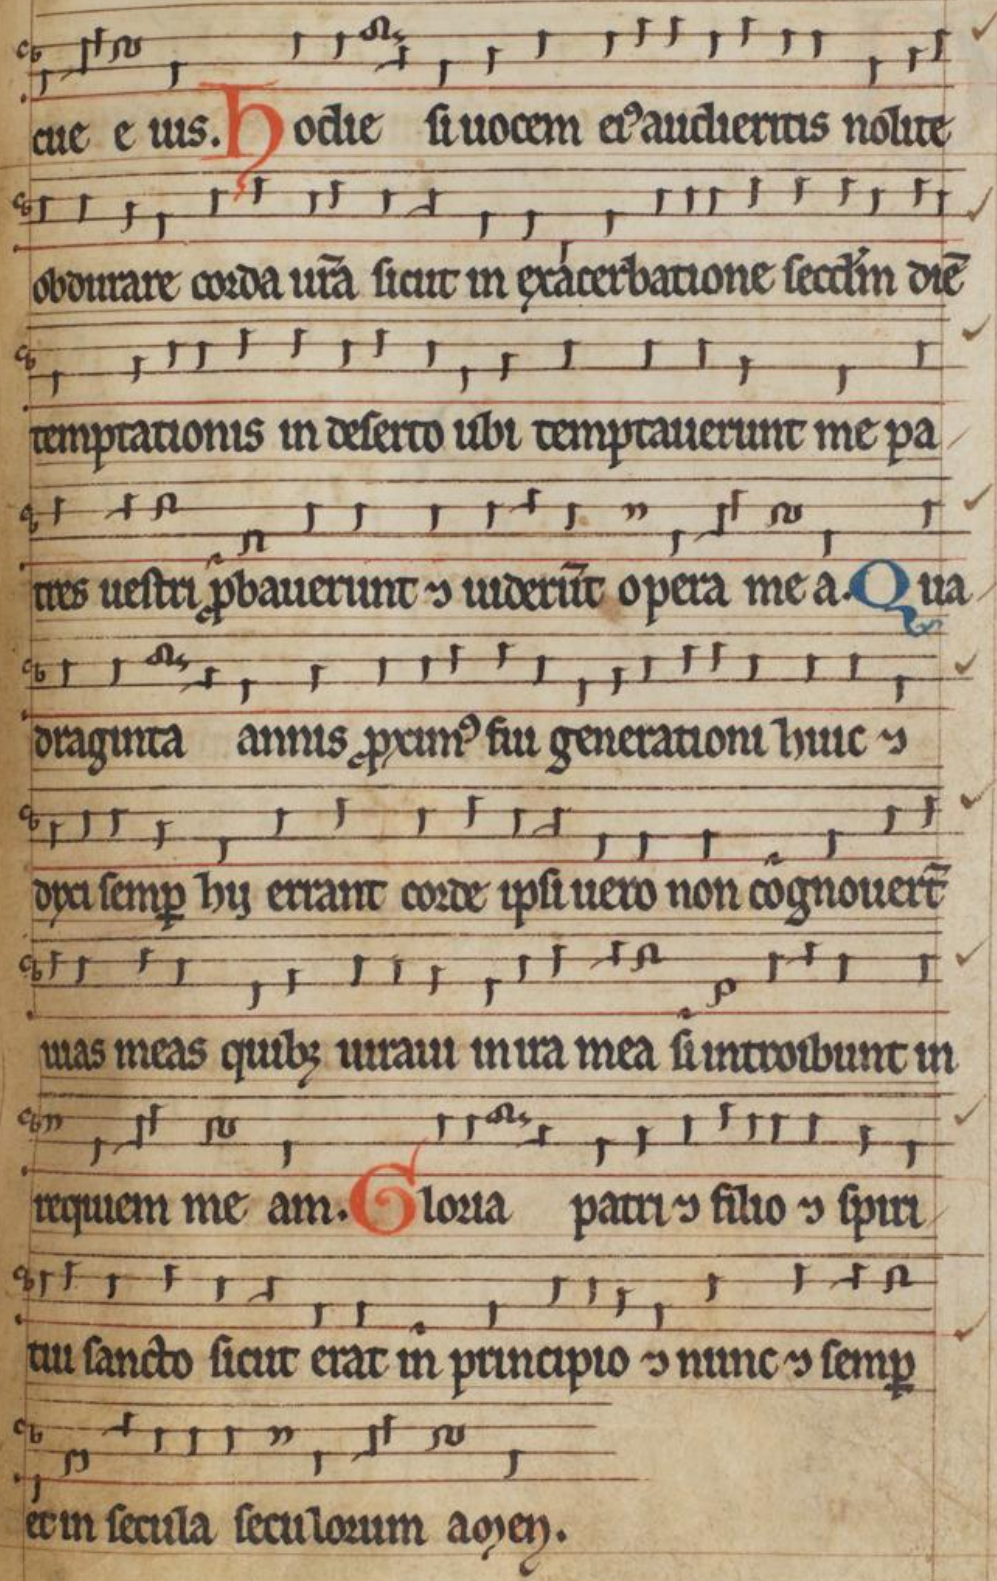 cue e ius. Hodie si uocem ei⁹ audieritis nolite
obdurare corda ur̃a sicut in exacerbatione secd̃m diē
temptationis in deserto ubi temptauerunt me pa
tres uestri ꝓbauerunt ⁊ uiderūt opera me a. Qua
draginta annis ꝓxim⁹ fui generationi huic ⁊
dyxi semꝑ hij errant corde ipsi uero non cognouer̃t
uias meas quibꝫ iuraui in ira mea si introibunt in
requiem me am. Gloria patri ⁊ filio ⁊ spiri
tui sancto sicut erat in principio ⁊ nunc ⁊ semꝑ
et in secula seculorum amen.